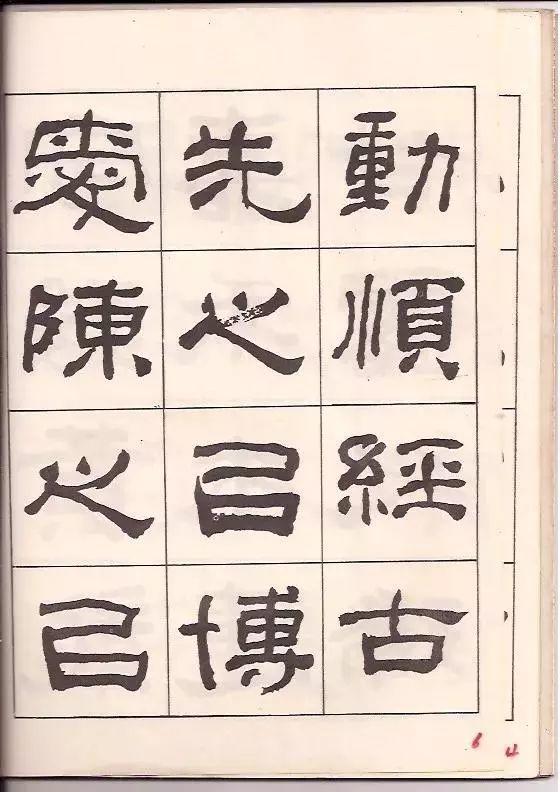 動順經古
先之㠯博
愛陳之㠯
6
4